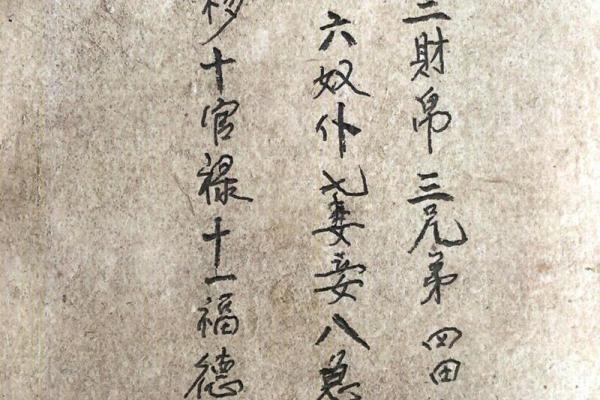 二財帛三兄弟四田
六奴仆七妻妾八
移十官禄十一福德